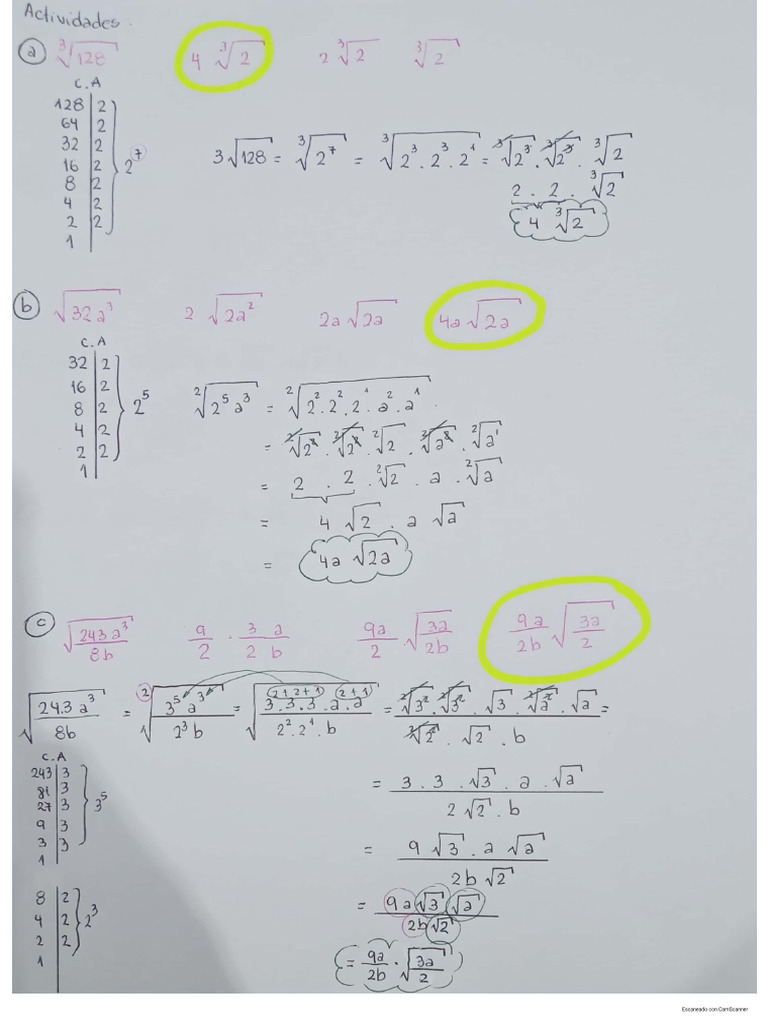 Actividades.
a ∛128 4 ∛2 2 ∛2 ∛2
C.A
128 | 2
64 | 2
32 | 2
16 | 2
8 | 2
4 | 2
2 | 2
1 |
2^7
3√128 = ∛(2^7) = ∛(2^3 . 2^3 . 2^1) = ∛(2^3) . ∛(2^3) . ∛2
2 . 2 . ∛2
4 ∛2
b √(32a^3) 2 √(2a^2) 2a √(2a) 4a √(2a)
C.A
32 | 2
16 | 2
8 | 2
4 | 2
2 | 2
1 |
2^5
²√(2^5 a^3) = ²√(2^2 . 2^2 . 2^1 . a^2 . a^1)
= ²√(2^2) . ²√(2^2) . ²√2 . ²√(a^2) . ²√(a^1)
= 2 . 2 . ²√2 . a . ²√a
= 4 √2 . a √a
= 4a √(2a)
c √(243a^3/8b) 9/2 . 3/2 a/b 9a/2 . √(3a/2b) 9a/2b √(3a/2)
√(243a^3/8b) = ²√(3^5 a^3/2^3 b) = √(3^2 . 3^2 . 3^1 . a^2 . a^1/2^2 . 2^1 . b) = ²√(3^2) . ²√(3^2) . √3 . ²√(a^2) . √a / ²√(2^2) . √2 . b =
C.A
243 | 3
81 | 3
27 | 3
9 | 3
3 | 3
1 |
3^5
= 3 . 3 . √3 . a . √a / 2 √2 . b
= 9 √3 . a √a / 2b √2
8 | 2
4 | 2
2 | 2
1 |
2^3
= 9a √3 √a / 2b √2
= 9a/2b . √(3a/2)
Escaneado con CamScanner